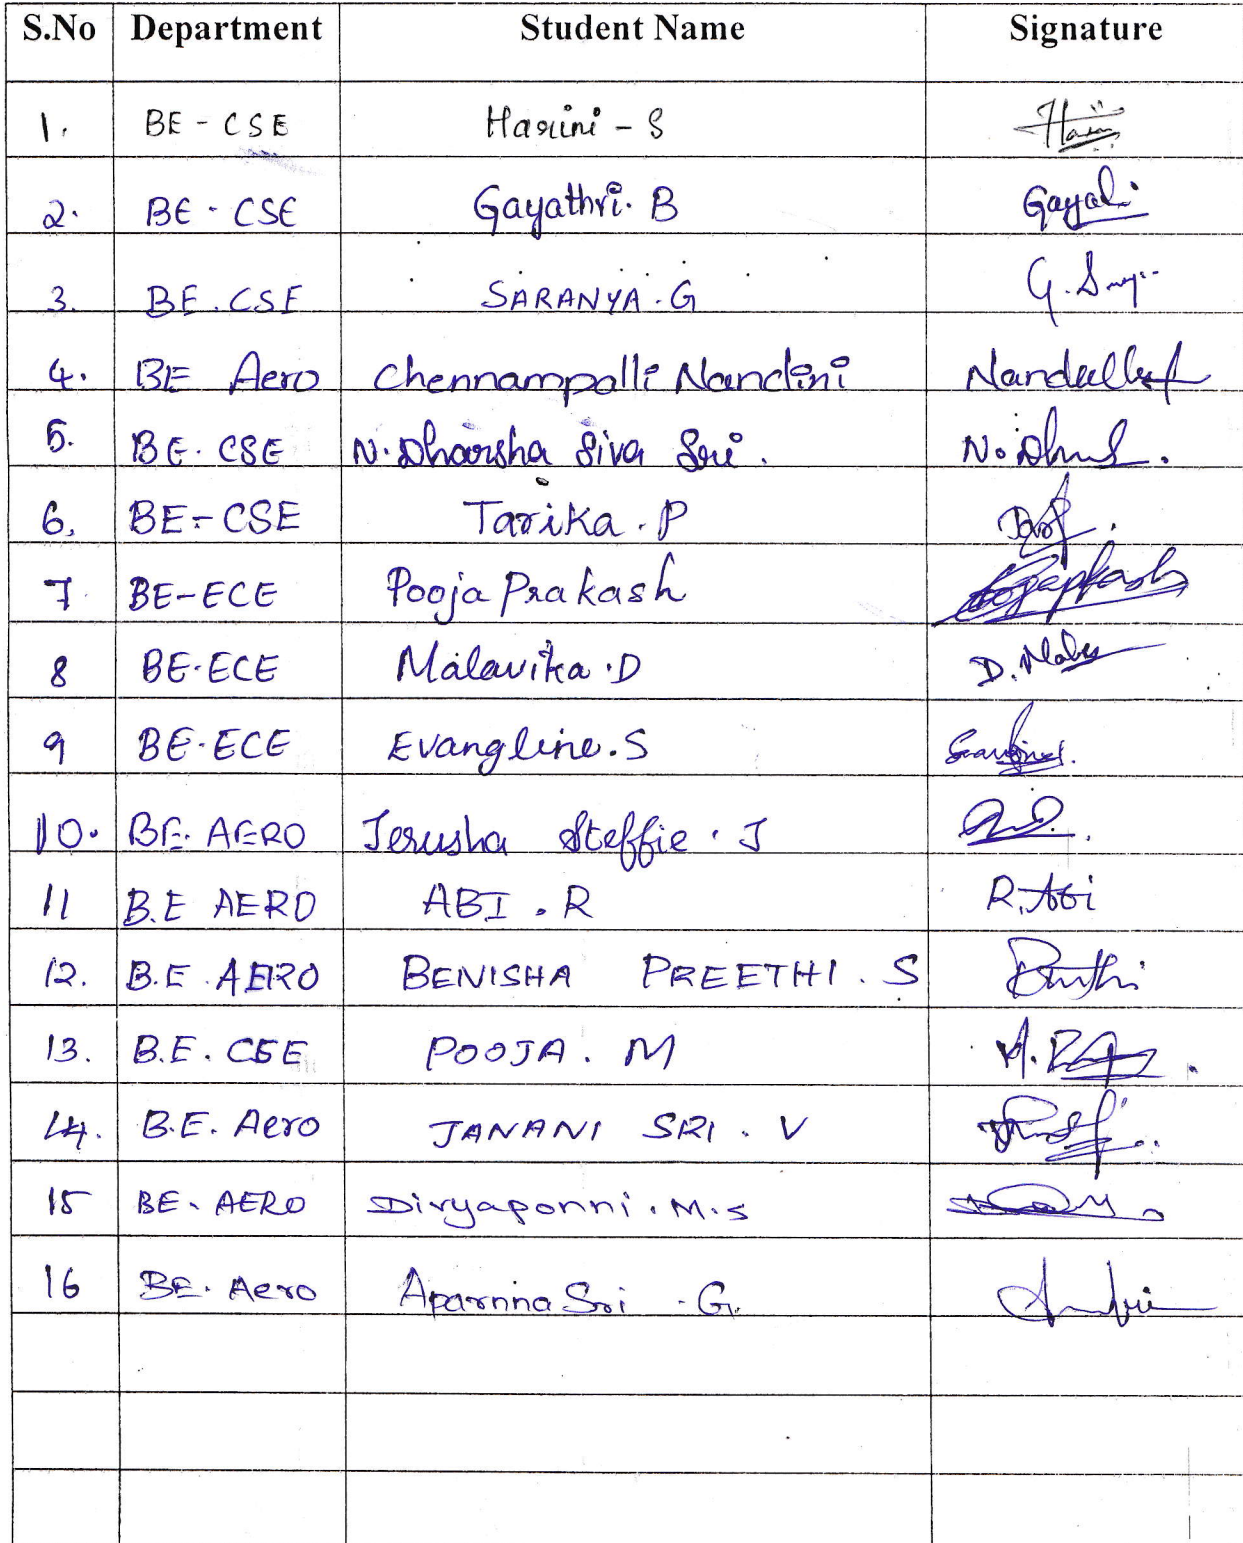 S.No Department Student Name Signature
1. BE - CSE Harini - S
2. BE - CSE Gayathri. B
3. BE. CSE SARANYA. G
4. BE Aero Chennampalli Nandini
5. BE. CSE N. Dharsha Siva Sri. N. 
6. BE - CSE Tarika. P
7. BE-ECE Pooja Prakash
8 BE-ECE Malavika. D D.
9 BE-ECE Evangline. S
10. BE. AERO Jerusha Steffie. J
11 B.E AERO ABI. R R. Abi
12. B.E. AERO BENISHA PREETHI. S
13. B.E. CSE POOJA. M M.
14. B.E. Aero JANANI SRI. V
15 BE. AERO Divyaponni. M.S
16 BE. Aero Aparnna Sri - G.